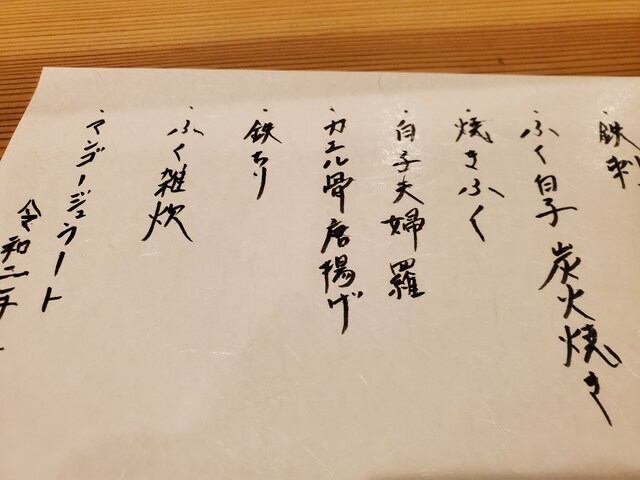 ・鉄刺
・ふく白子 炭火焼き
・焼きふく
・白子天婦羅
・カエル骨唐揚げ
・鉄ちり
・ふく雑炊
・マンゴージェラート
令和二年